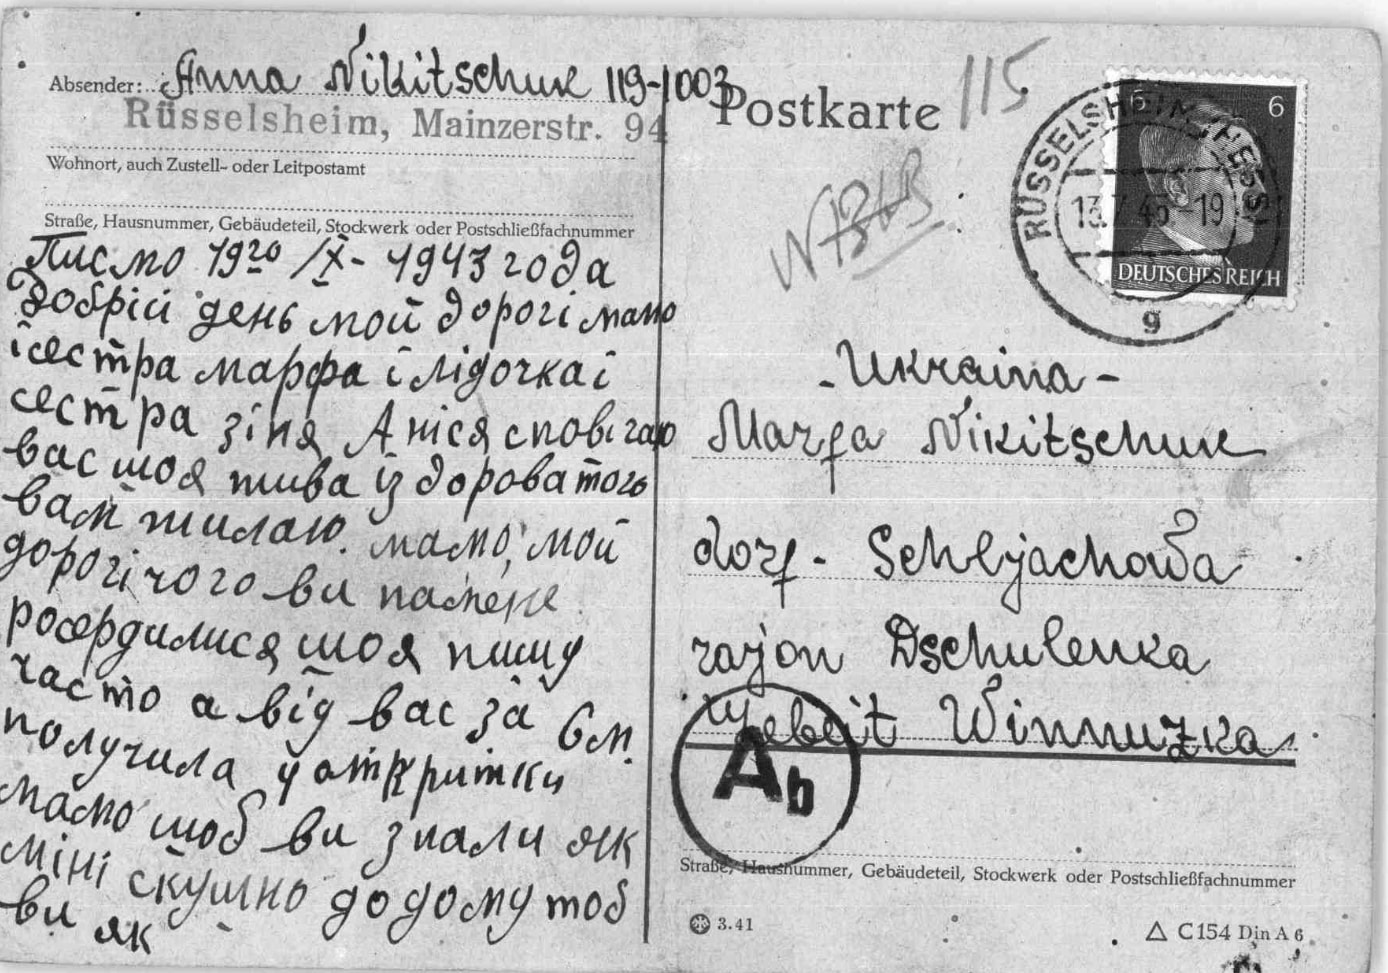 Absender: Anna Nikitschuk 119-1003
Rüsselsheim, Mainzerstr. 94
Wohnort, auch Zustell- oder Leitpostamt
Straße, Hausnummer, Gebäudeteil, Stockwerk oder Postschließfachnummer
Писмо 1920 /X- 1943 года
Добрій день мой дорогі мамо
і сестра марфа і лідочка і
сестра зіня Анися сповіщаю
вас шо я жива і здорова того
вам жилаю. мамо, мой
дорогі чого ви на мене
росердилися шо я пишу
часто а від вас за 6 м.
получила 4 откритки
мамо шоб ви знали як
міні скушно додому тоб
ви як
Postkarte 115
RÜSSELSHEIM (HESS)
13. 43-19
g
6 6
DEUTSCHES REICH
-Ukraina-
Marfa Nikitschuk
dorf- Schljachowa
rajon Dschulenka
gebeit Winnuzka
Ab
Straße, Hausnummer, Gebäudeteil, Stockwerk oder Postschließfachnummer
3.41
C 154 Din A 6